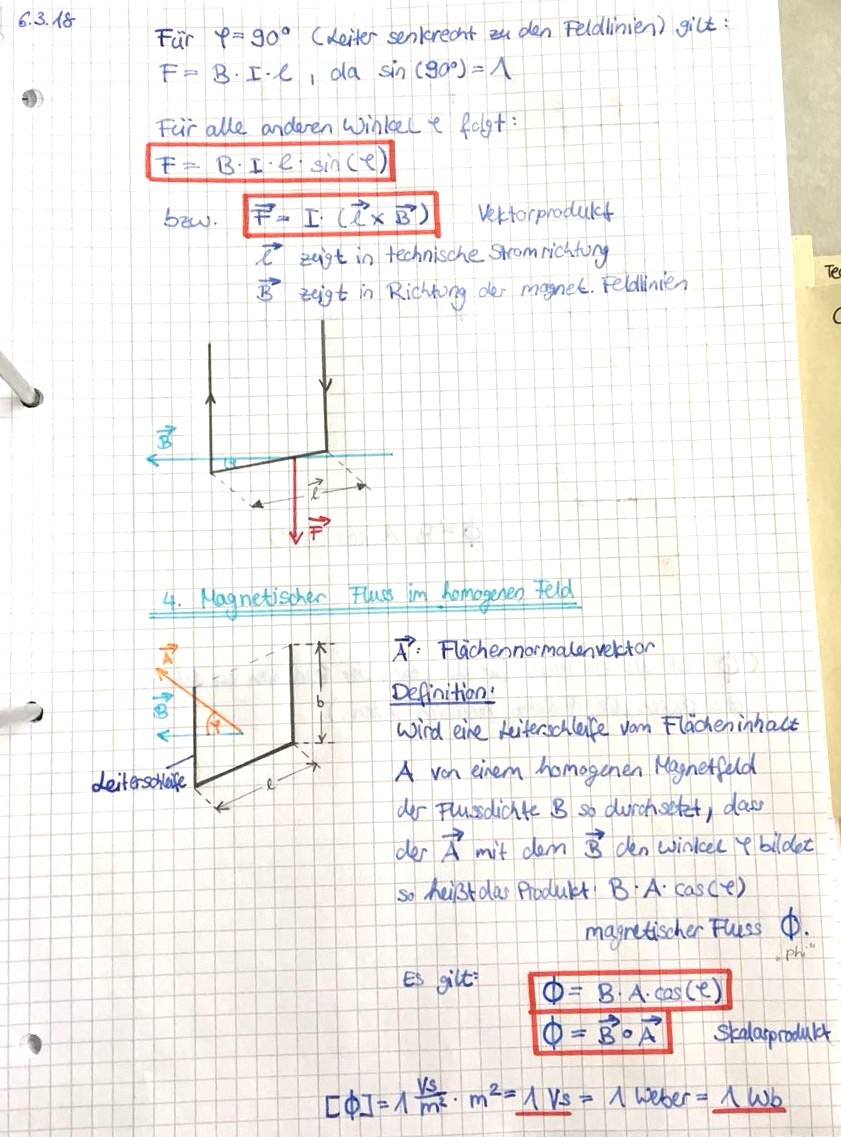 6.3.18
Für φ=90° (Leiter senkrecht zu den Feldlinien) gilt:
F = B·I·l , da sin(90°)=1
Für alle anderen Winkel φ folgt:
F = B·I·l·sin(φ)
bzw. F⃗ = I·(l⃗ × B⃗) Vektorprodukt
l⃗ zeigt in technische Stromrichtung
B⃗ zeigt in Richtung der magnet. Feldlinien
Te
B⃗
φ
l⃗
F⃗
4. Magnetischer Fluss im homogenen Feld
A⃗
B⃗
φ
b
l
Leiterschleife
A⃗: Flächennormalenvektor
Definition:
Wird eine Leiterschleife vom Flächeninhalt
A von einem homogenen Magnetfeld
der Flussdichte B so durchsetzt, dass
der A⃗ mit dem B⃗ den Winkel φ bildet
so heißt das Produkt: B·A·cos(φ)
magnetischer Fluss ϕ.
„phi"
Es gilt:
ϕ = B·A·cos(φ)
ϕ = B⃗ ∘ A⃗ Skalarprodukt
[ϕ] = 1 Vs/m² · m² = 1 Vs = 1 Weber = 1 Wb